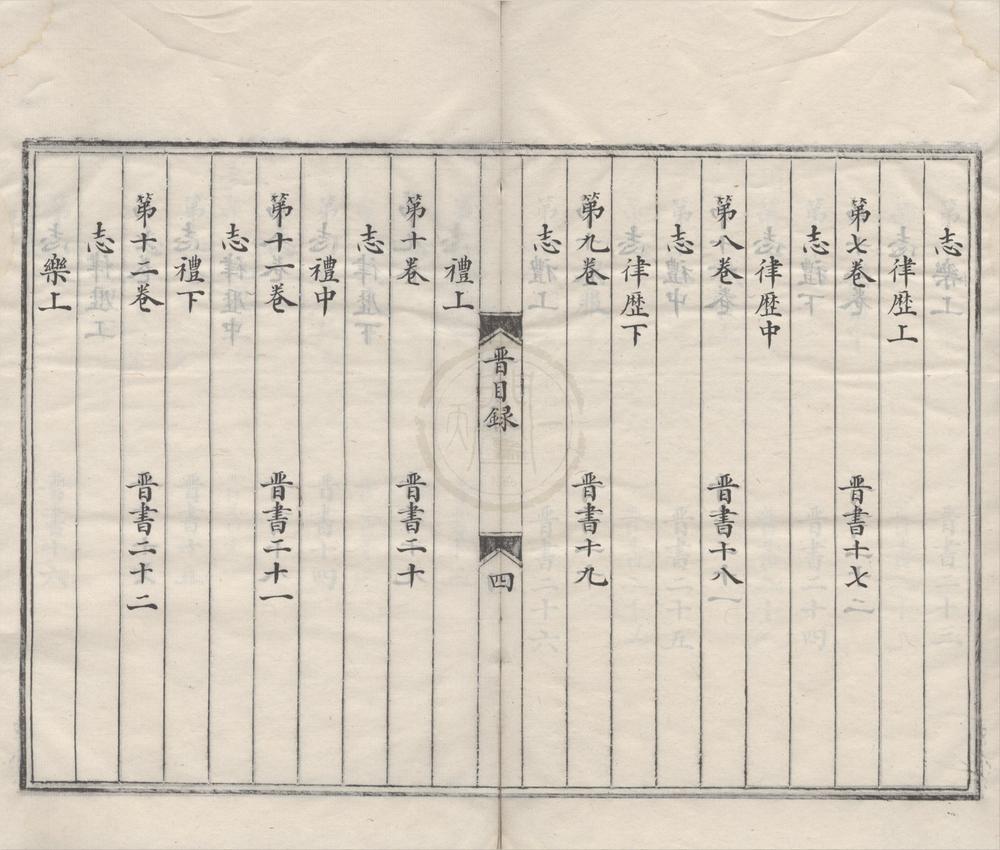 志
律歴上
第七卷 晋書十七
志
律歴中
第八卷 晋書十八
志
律歴下
第九卷 晋書十九
志
晋目録 四
禮上
第十卷 晋書二十
志
禮中
第十一卷 晋書二十一
志
禮下
第十二卷 晋書二十二
志
樂上